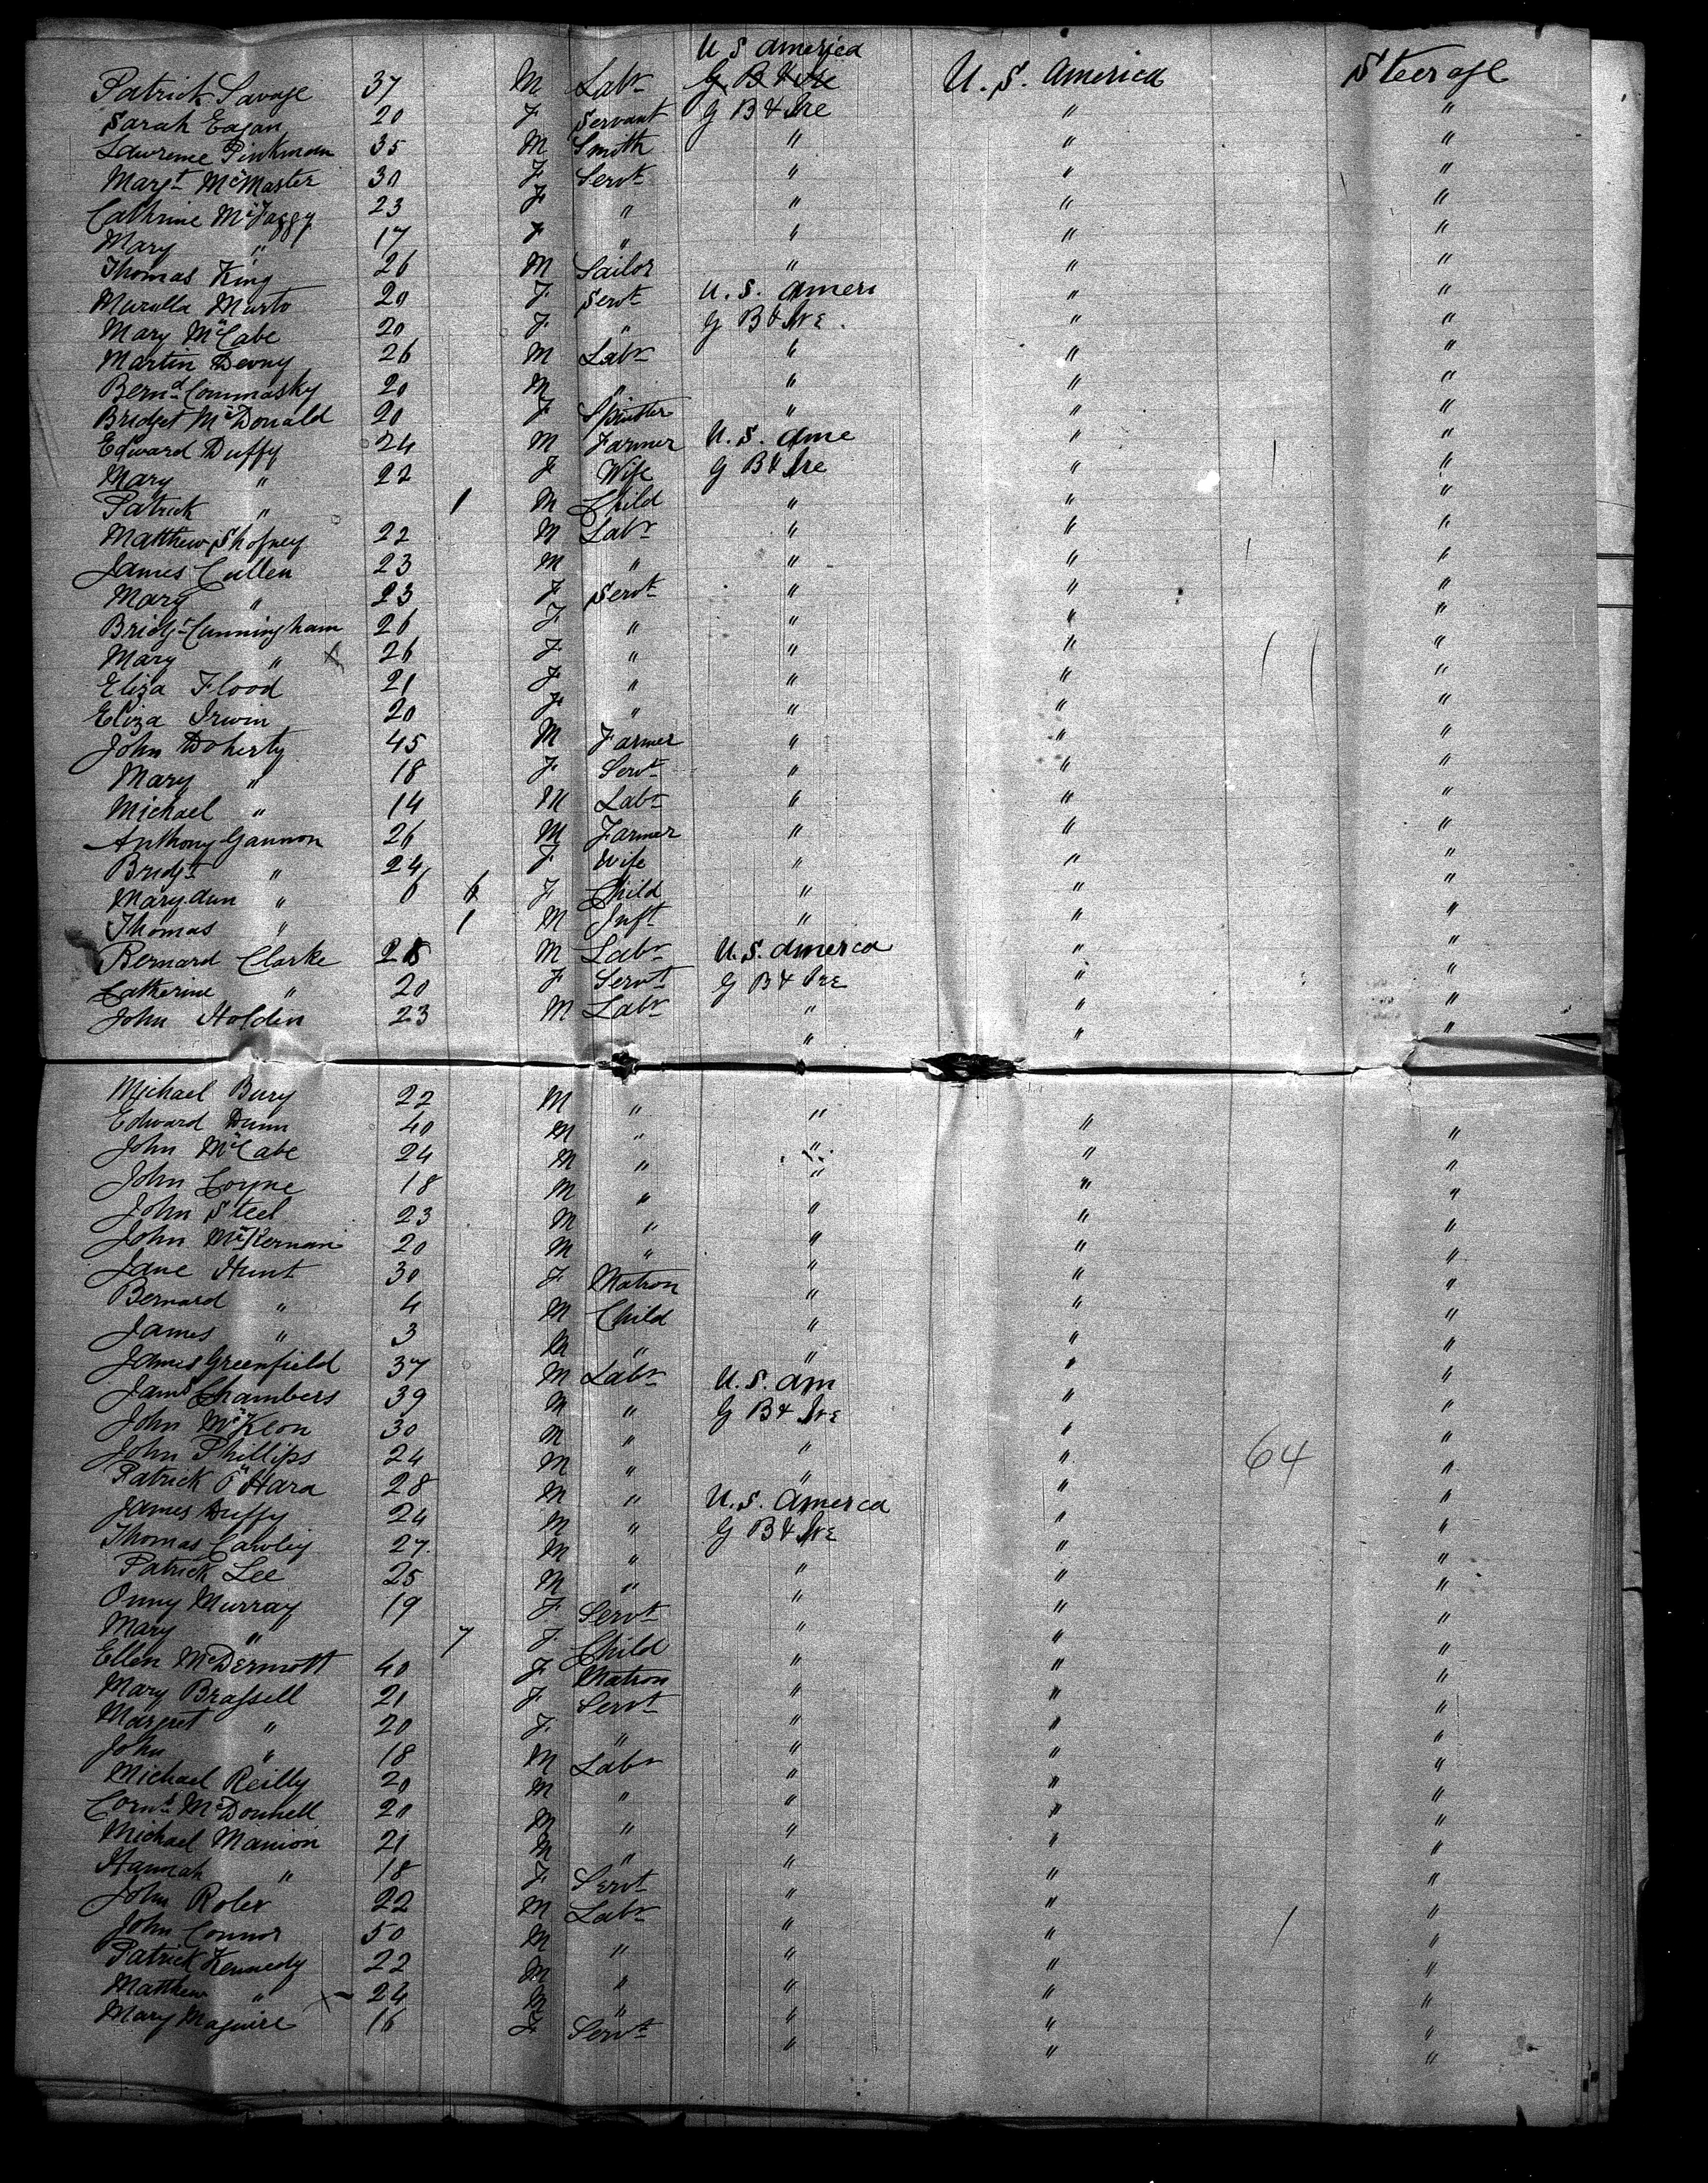 U S America
Patrick Savage 37 M Labr G B & Ire U. S. America Steerage
Sarah Eagan 20 F Servant G B & Ire " "
Lawrence Pinkman 35 M Smith " " "
Margt McMaster 30 F Servt " " "
Cathrine McTaggy 23 F " " " "
Mary " 17 F " " " "
Thomas King 26 M Sailor " " "
Muralla Murto 20 F Servt U. S. Ameri " "
Mary McCabe 20 F " G B & Ire. " "
Martin Devny 26 M Labr " " "
Bernd Commasky 20 M " " " "
Bridget McDonald 20 F Spinster " " "
Edward Duffy 24 M Farmer U. S. Ame " "
Mary " 22 F Wife G B & Ire " "
Patrick " 1 M Child " " "
Matthew Shofney 22 M Labr " " "
James Cullen 23 M " " " "
Mary " 23 F Servt " " "
Bridgt Cunningham 26 F " " " "
Mary " x 26 F " " " "
Eliza Flood 21 F " " " "
Eliza Irwin 20 F " " " "
John Doherty 45 M Farmer " " "
Mary " 18 F Servt " " "
Michael " 14 M Labr " " "
Anthony Gannon 26 M Farmer " " "
Bridgt " 24 F Wife " " "
Mary Ann " 6 6 F Child " " "
Thomas " 1 M Inft " " "
Bernard Clarke 28 M Labr U. S. Amerca " "
Catherine " 20 F Servt G B & Ire " "
John Holden 23 M Labr " " "
Michael Bury 22 M " " " "
Edward Dunn 40 M " " " "
John McCabe 24 M " " " "
John Coyne 18 M " " " "
John Steel 23 M " " " "
John McKernan 20 M " " " "
Jane Hunt 30 F Matron " " "
Bernard " 4 M Child " " "
James " 3 M " " " "
James Greenfield 37 M Labr U. S. Am " "
Jams Chambers 39 M " G B & Ire " "
John McKeon 30 M " " " "
John Phillips 24 M " " " 64 "
Patrick O'Hara 28 M " U. S. Amerca " "
James Duffy 24 M " G B & Ire " "
Thomas Cawley 27 M " " " "
Patrick Lee 25 M " " " "
Onny Murray 19 F Servt " " "
Mary " 7 F Child " " "
Ellen McDermott 40 F Matron " " "
Mary Brassell 21 F Servt " " "
Margret " 20 F " " " "
John " 18 M Labr " " "
Michael Reilly 20 M " " " "
Corns McDonnell 20 M " " " "
Michael Manion 21 M " " " "
Hannah " 18 F Servt " " "
John Roler 22 M Labr " " "
John Connor 50 M " " " "
Patrick Kennedy 22 M " " " "
Matthew " x 24 M " " " "
Mary Maguire 16 F Servt " " "